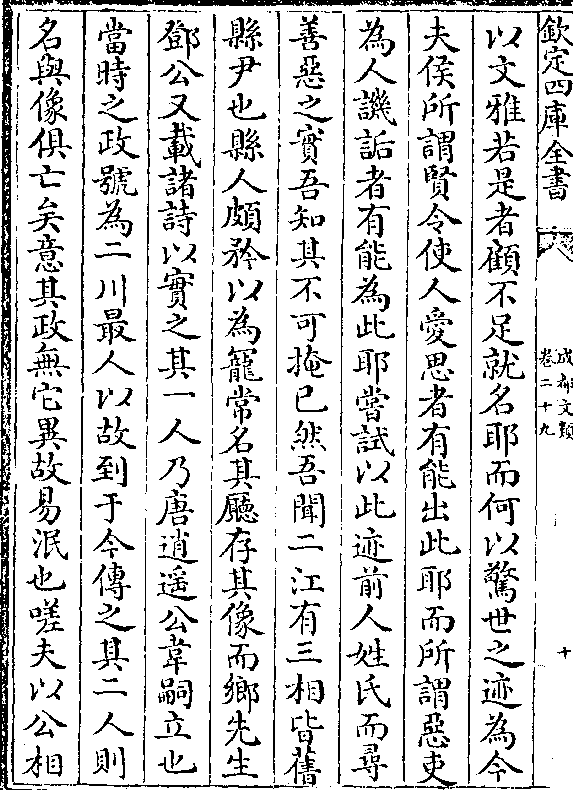 欽定四庫全書
成都文類
卷二十九
十
以文雅若是者顧不足就名耶而何以驚世之迹為今
夫侯所謂賢令使人愛思者有能出此耶而所謂惡吏
為人譏詬者有能為此耶嘗試以此迹前人姓氏而尋
善惡之實吾知其不可掩已然吾聞二江有三相皆舊
縣尹也縣人頗矜以為寵常名其廳存其像而鄉先生
鄧公又載諸詩以實之其一人乃唐逍遥公韋嗣立也
當時之政號為二川最人以故到于今傳之其二人則
名與像俱亡矣意其政無它異故易泯也嗟夫以公相